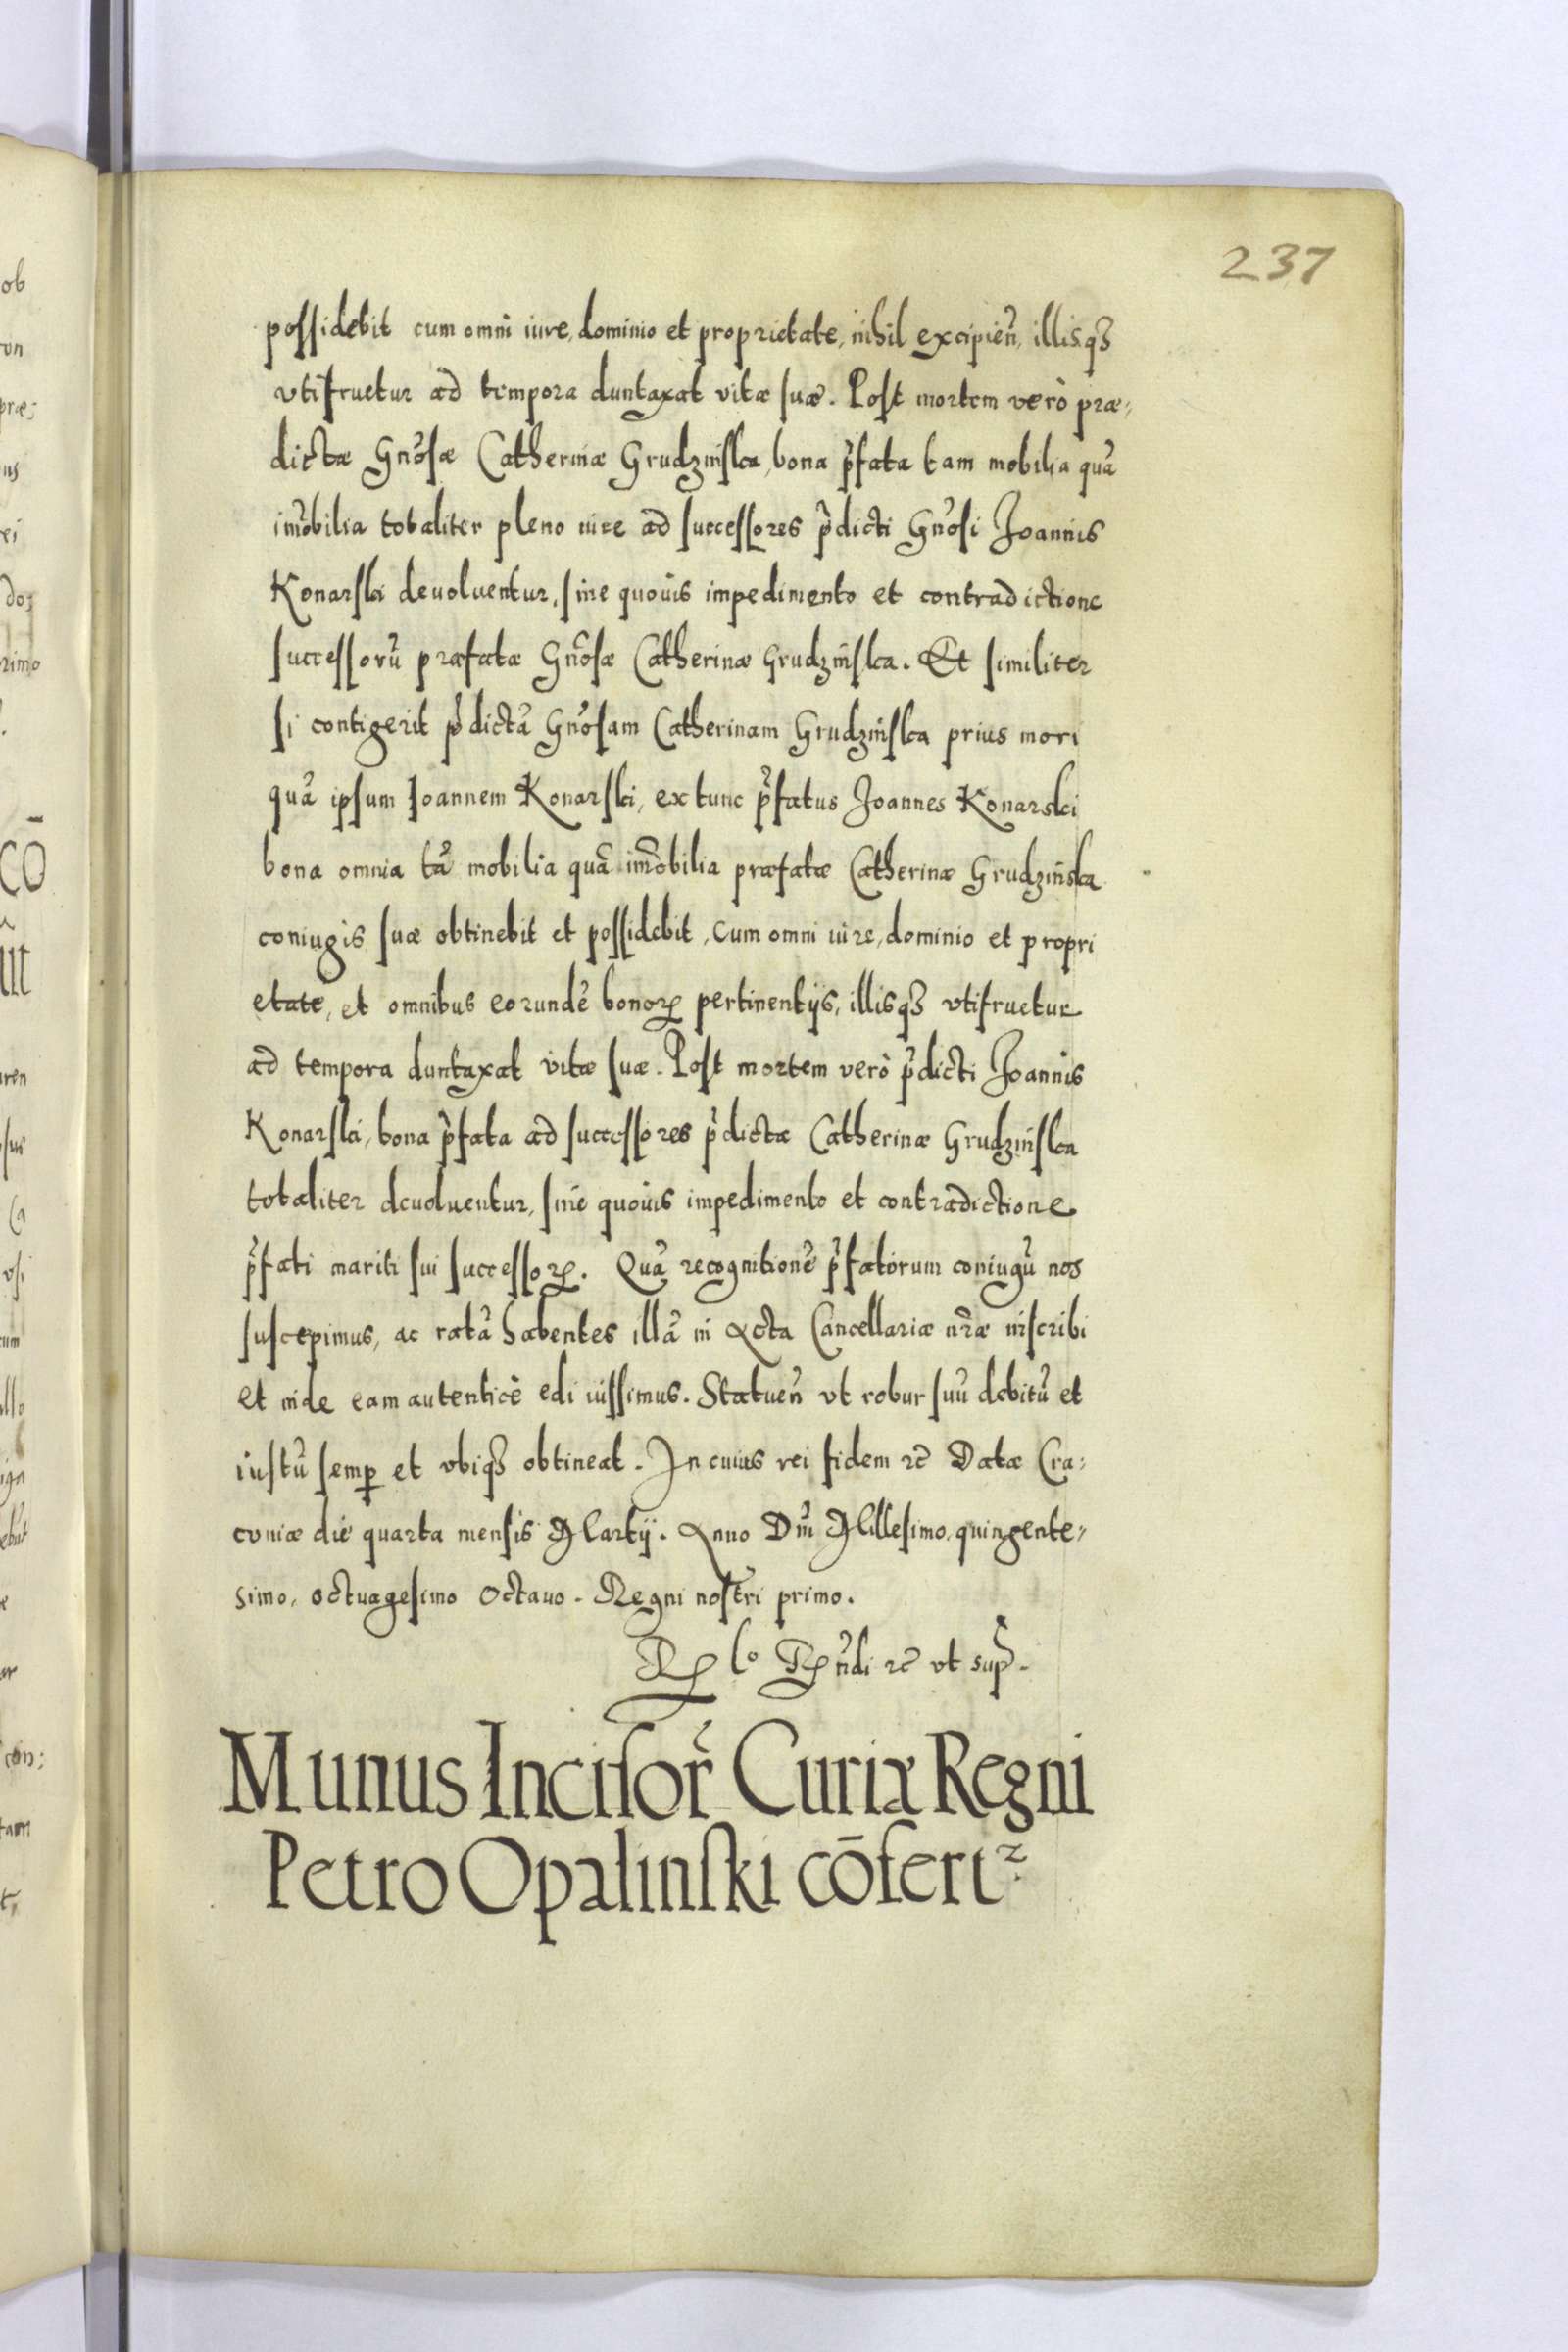 237
possidebit cum omni iure, dominio et proprietate, nihil excipień, illisq3
vtifruetur ad tempora duntaxat vitæ suæ. Post mortem verò præ=
dictæ Gn̄osæ Catherinæ Grudzinska, bona p̄fata tam mobilia quā
im̄obilia totaliter pleno iure ad successores p̄dicti Gn̄osi Joannis
Konarski deuoluentur, sine quouis impedimento et contradictione
successorū præfatæ Gn̄osæ Catherinæ Grudzinska. Et similiter
si contigerit p̄dictā Gn̄osam Catherinam Grudzinska prius mori
quā ipsum Ioannem Konarski, extunc p̄fatus Joannes Konarski
bona omnia tā mobilia quā im̄obilia præfatæ Catherinæ Grudzińska
coniugis suæ obtinebit et possidebit, cum omni iure, dominio et propri
etate, et omnibus eorundē bonoꝝ pertinentijs, illisq3 vtifruetur
ad tempora duntaxat vitæ suæ. Post mortem verò p̄dicti Joannis
Konarski, bona p̄fata ad successores p̄dictæ Catherinæ Grudzinska
totaliter deuoluentur, sine quouis impedimento et contradictione
p̄fati mariti sui successoꝝ. Quā recognitionē p̄fatorum coniugū nos
suscepimus, ac ratā habentes illā in Acta Cancellariæ nr̄æ inscribi
et inde eam autenticè edi iussimus. Statueń vt robur suū debitū et
iustū semꝑ et vbiq3 obtineat. In cuius rei fidem ꝛc̄ Datæ Cra=
couiæ die quarta mensis Martij. Anno Dn̄i Millesimo, quingente=
simo, octuagesimo Octauo. Regni nostri primo.
ꝛc̄ vt sup̄.
Munus Incisor̄ Curiæ Regni
Petro Opalinski cōfertꝛ.